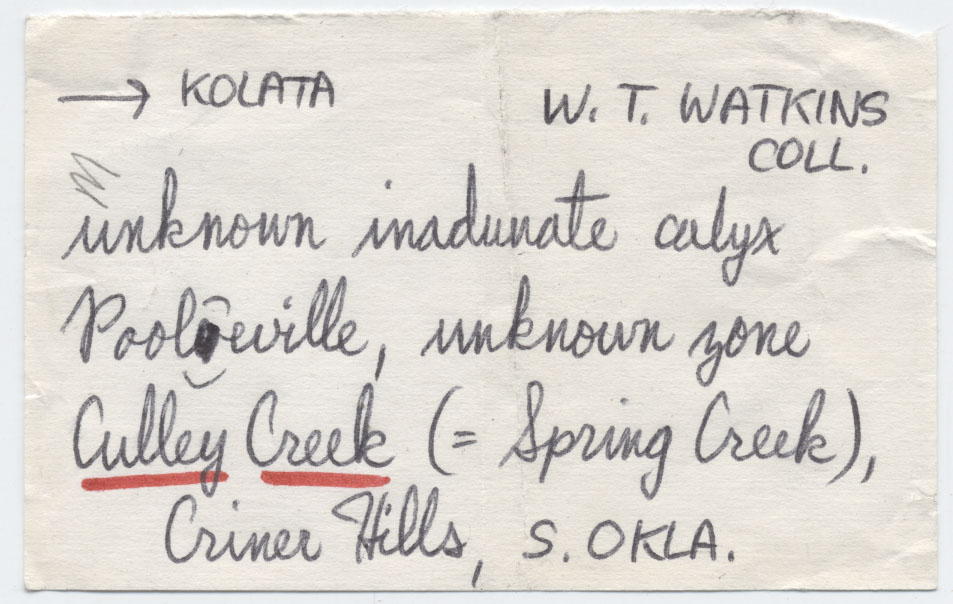 → KOLATA
W. T. WATKINS
COLL.
unknown inadunate calyx
Pooleville, unknown zone
Culley Creek (= Spring Creek),
Criner Hills, S. OKLA.